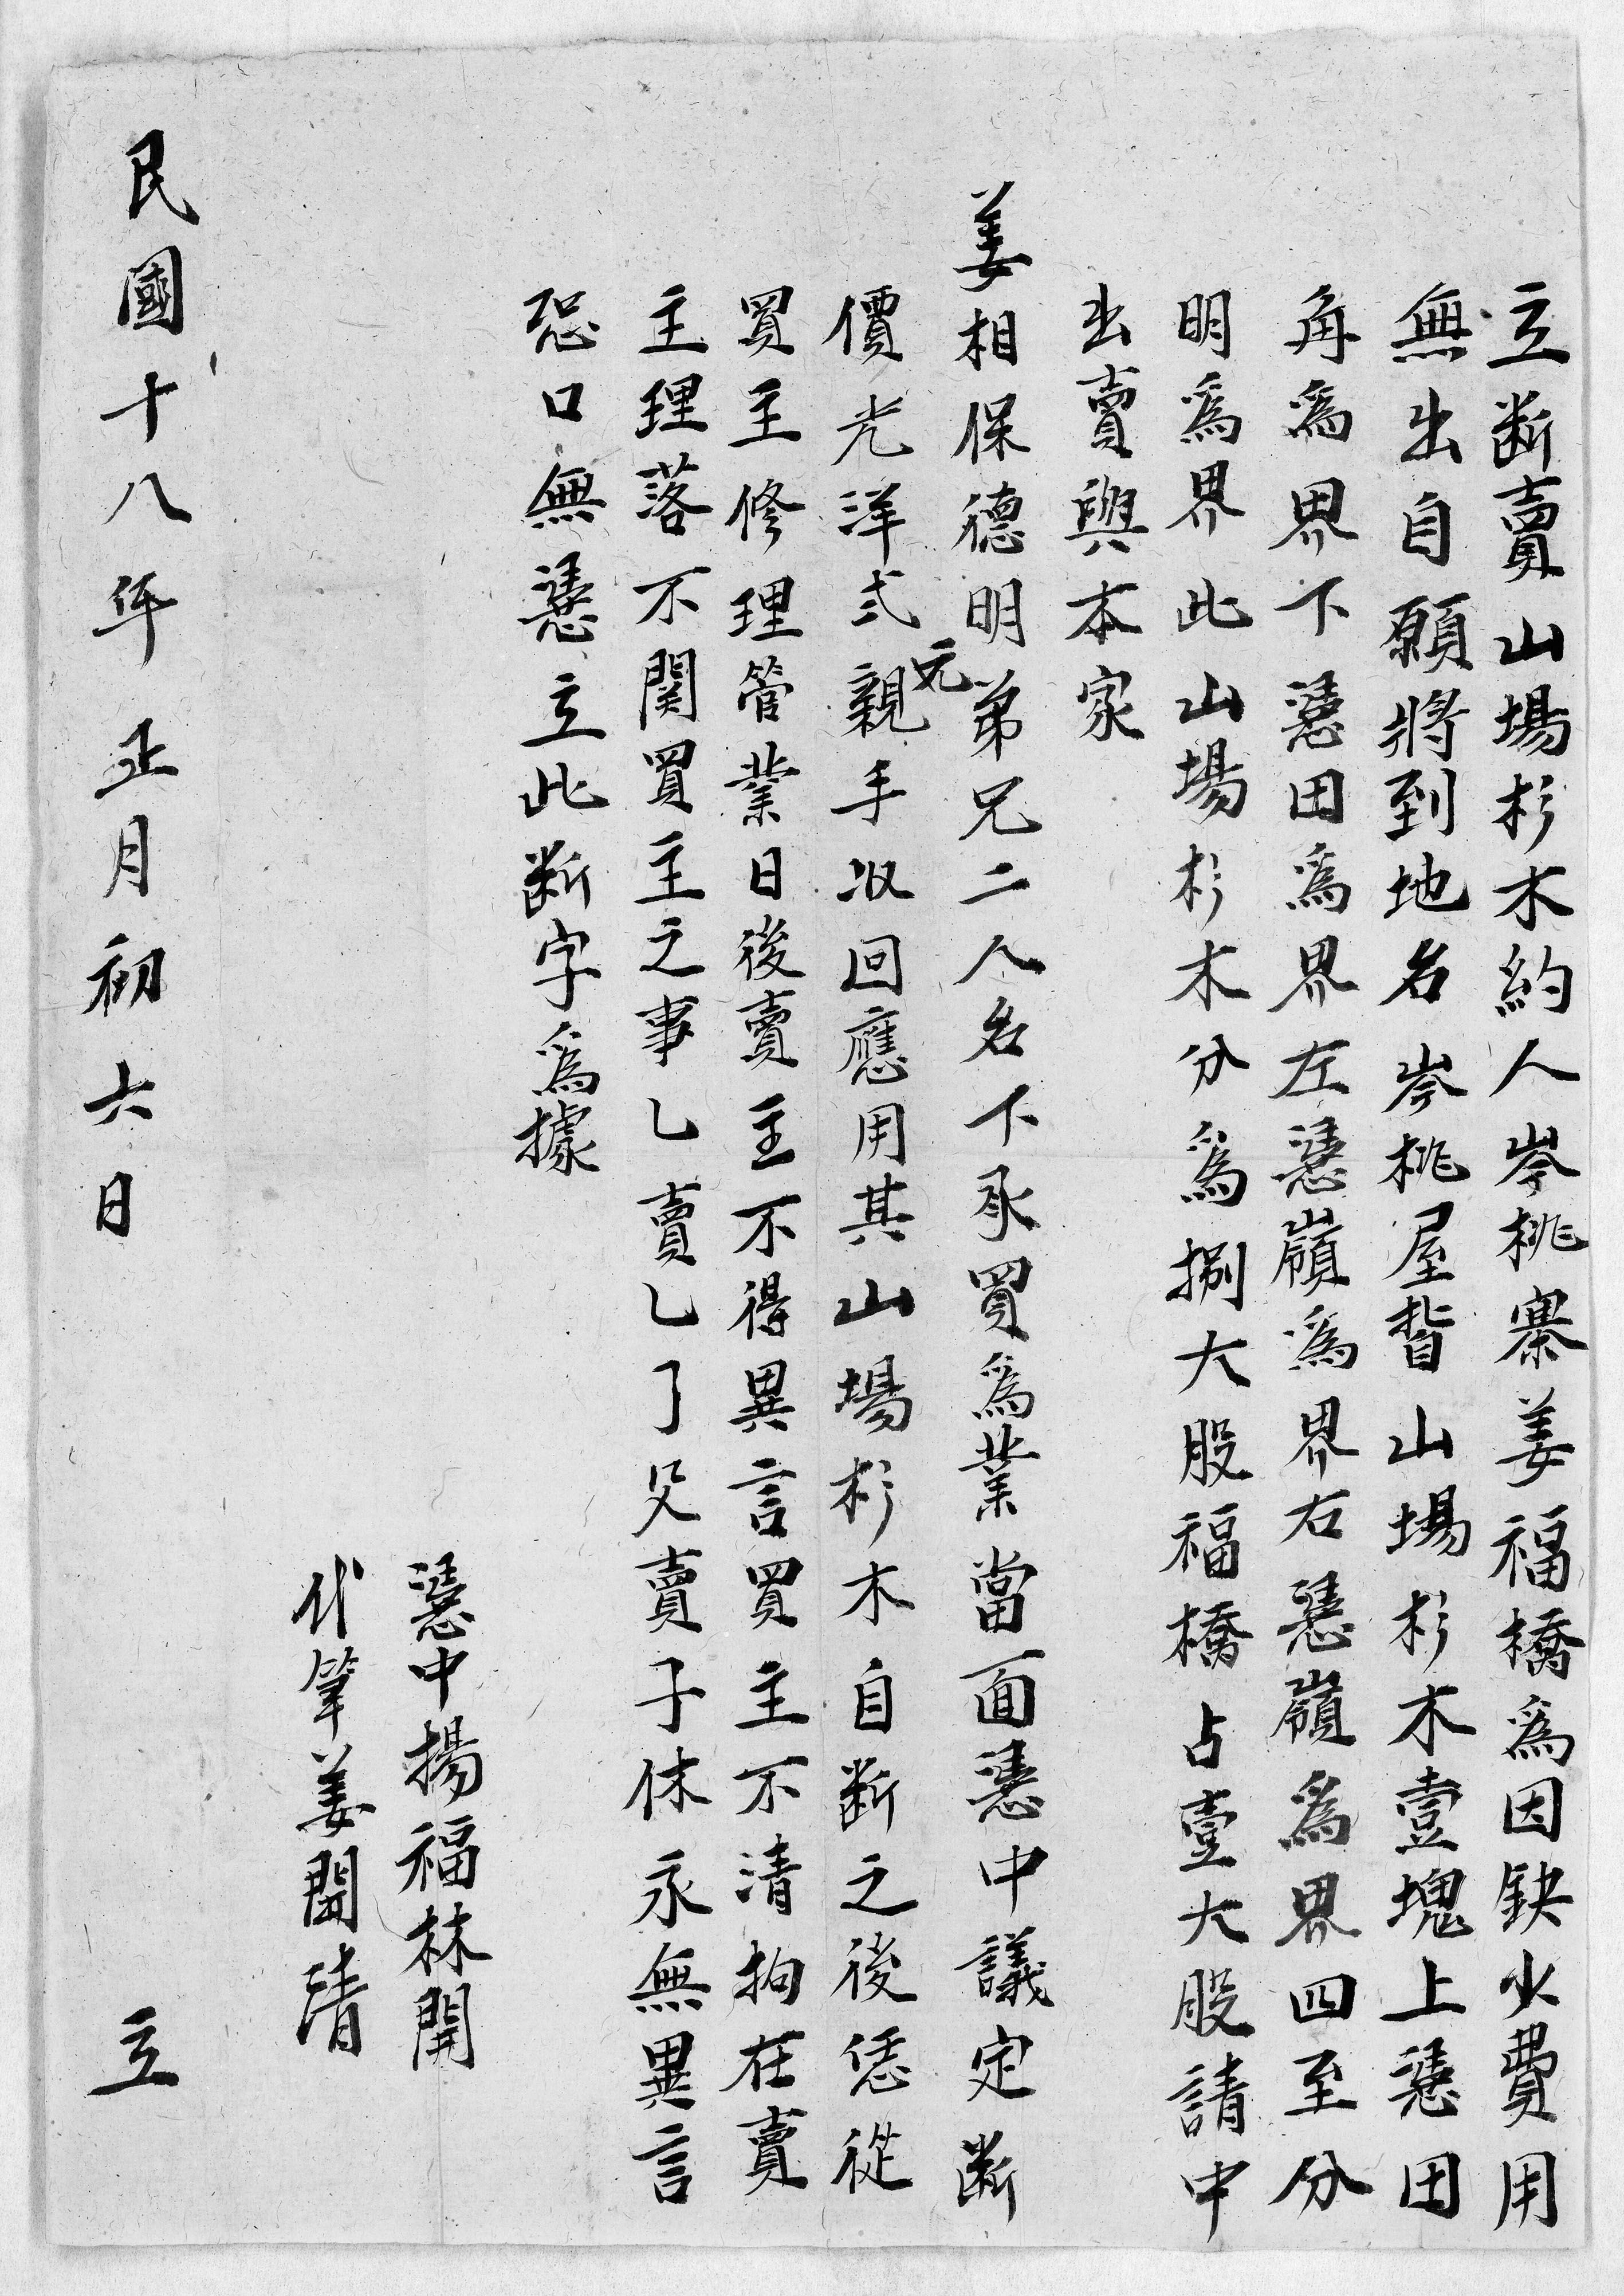 立断賣山場杉木約人岑桃寨姜福橋爲因缺少費用
無出自願將到地名岑桃屋背山場杉木壹塊上憑田
角爲界下憑田爲界左憑嶺爲界右憑嶺爲界四至分
明爲界此山場杉木分爲捌大股福橋占壹大股請中
出賣與本家
姜相保德明弟兄二人名下承買爲業當面憑中議定断
價光洋弍元親手收回應用其山場杉木自断之後恁從
買主修理管業日後賣主不得異言買主不清拘在賣
主理落不関買主之事乚賣乚了父賣子休永無異言
恐口無憑立此断字爲據
憑中揚福林開
代筆姜開清
民國十八年正月初六日 立